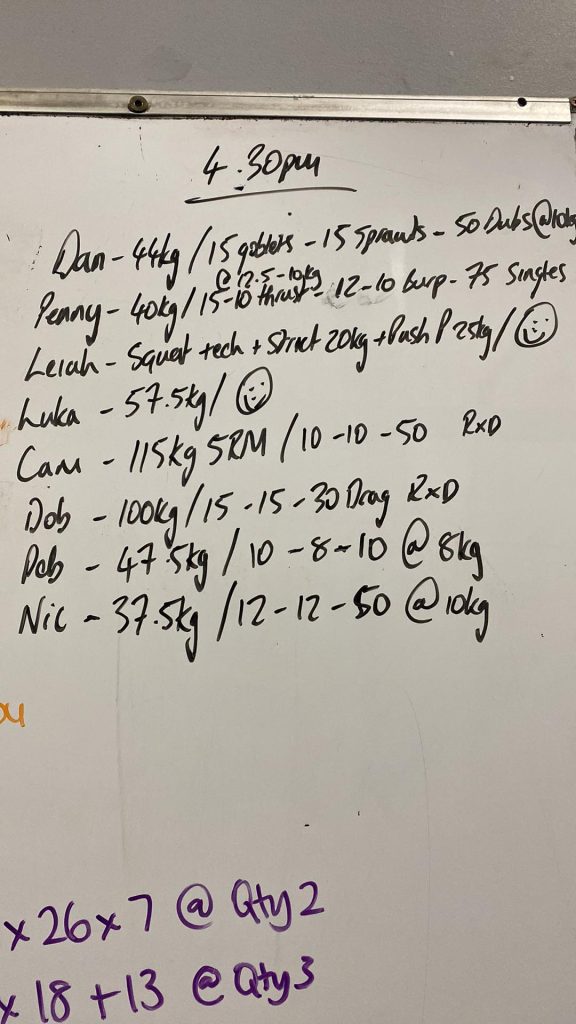 4.30pm
Dan - 44kg / 15 goblets - 15 Sprawls - 50 Dubs @ 10kg
@ 12.5-10kg
Penny - 40kg / 15-10 thrust - 12-10 burp - 75 Singles
Leiah - Squat tech + Strict 20kg + Push P 25kg /
Luka - 57.5kg /
Cam - 115kg 5RM / 10 - 10 - 50 RxD
Dob - 100kg / 15 - 15 - 30 Drag RxD
Deb - 47.5kg / 10 - 8 - 10 @ 8kg
Nic - 37.5kg / 12 - 12 - 50 @ 10kg
ou
x 26 x 7 @ Qty 2
x 18 + 13 @ Qty 3